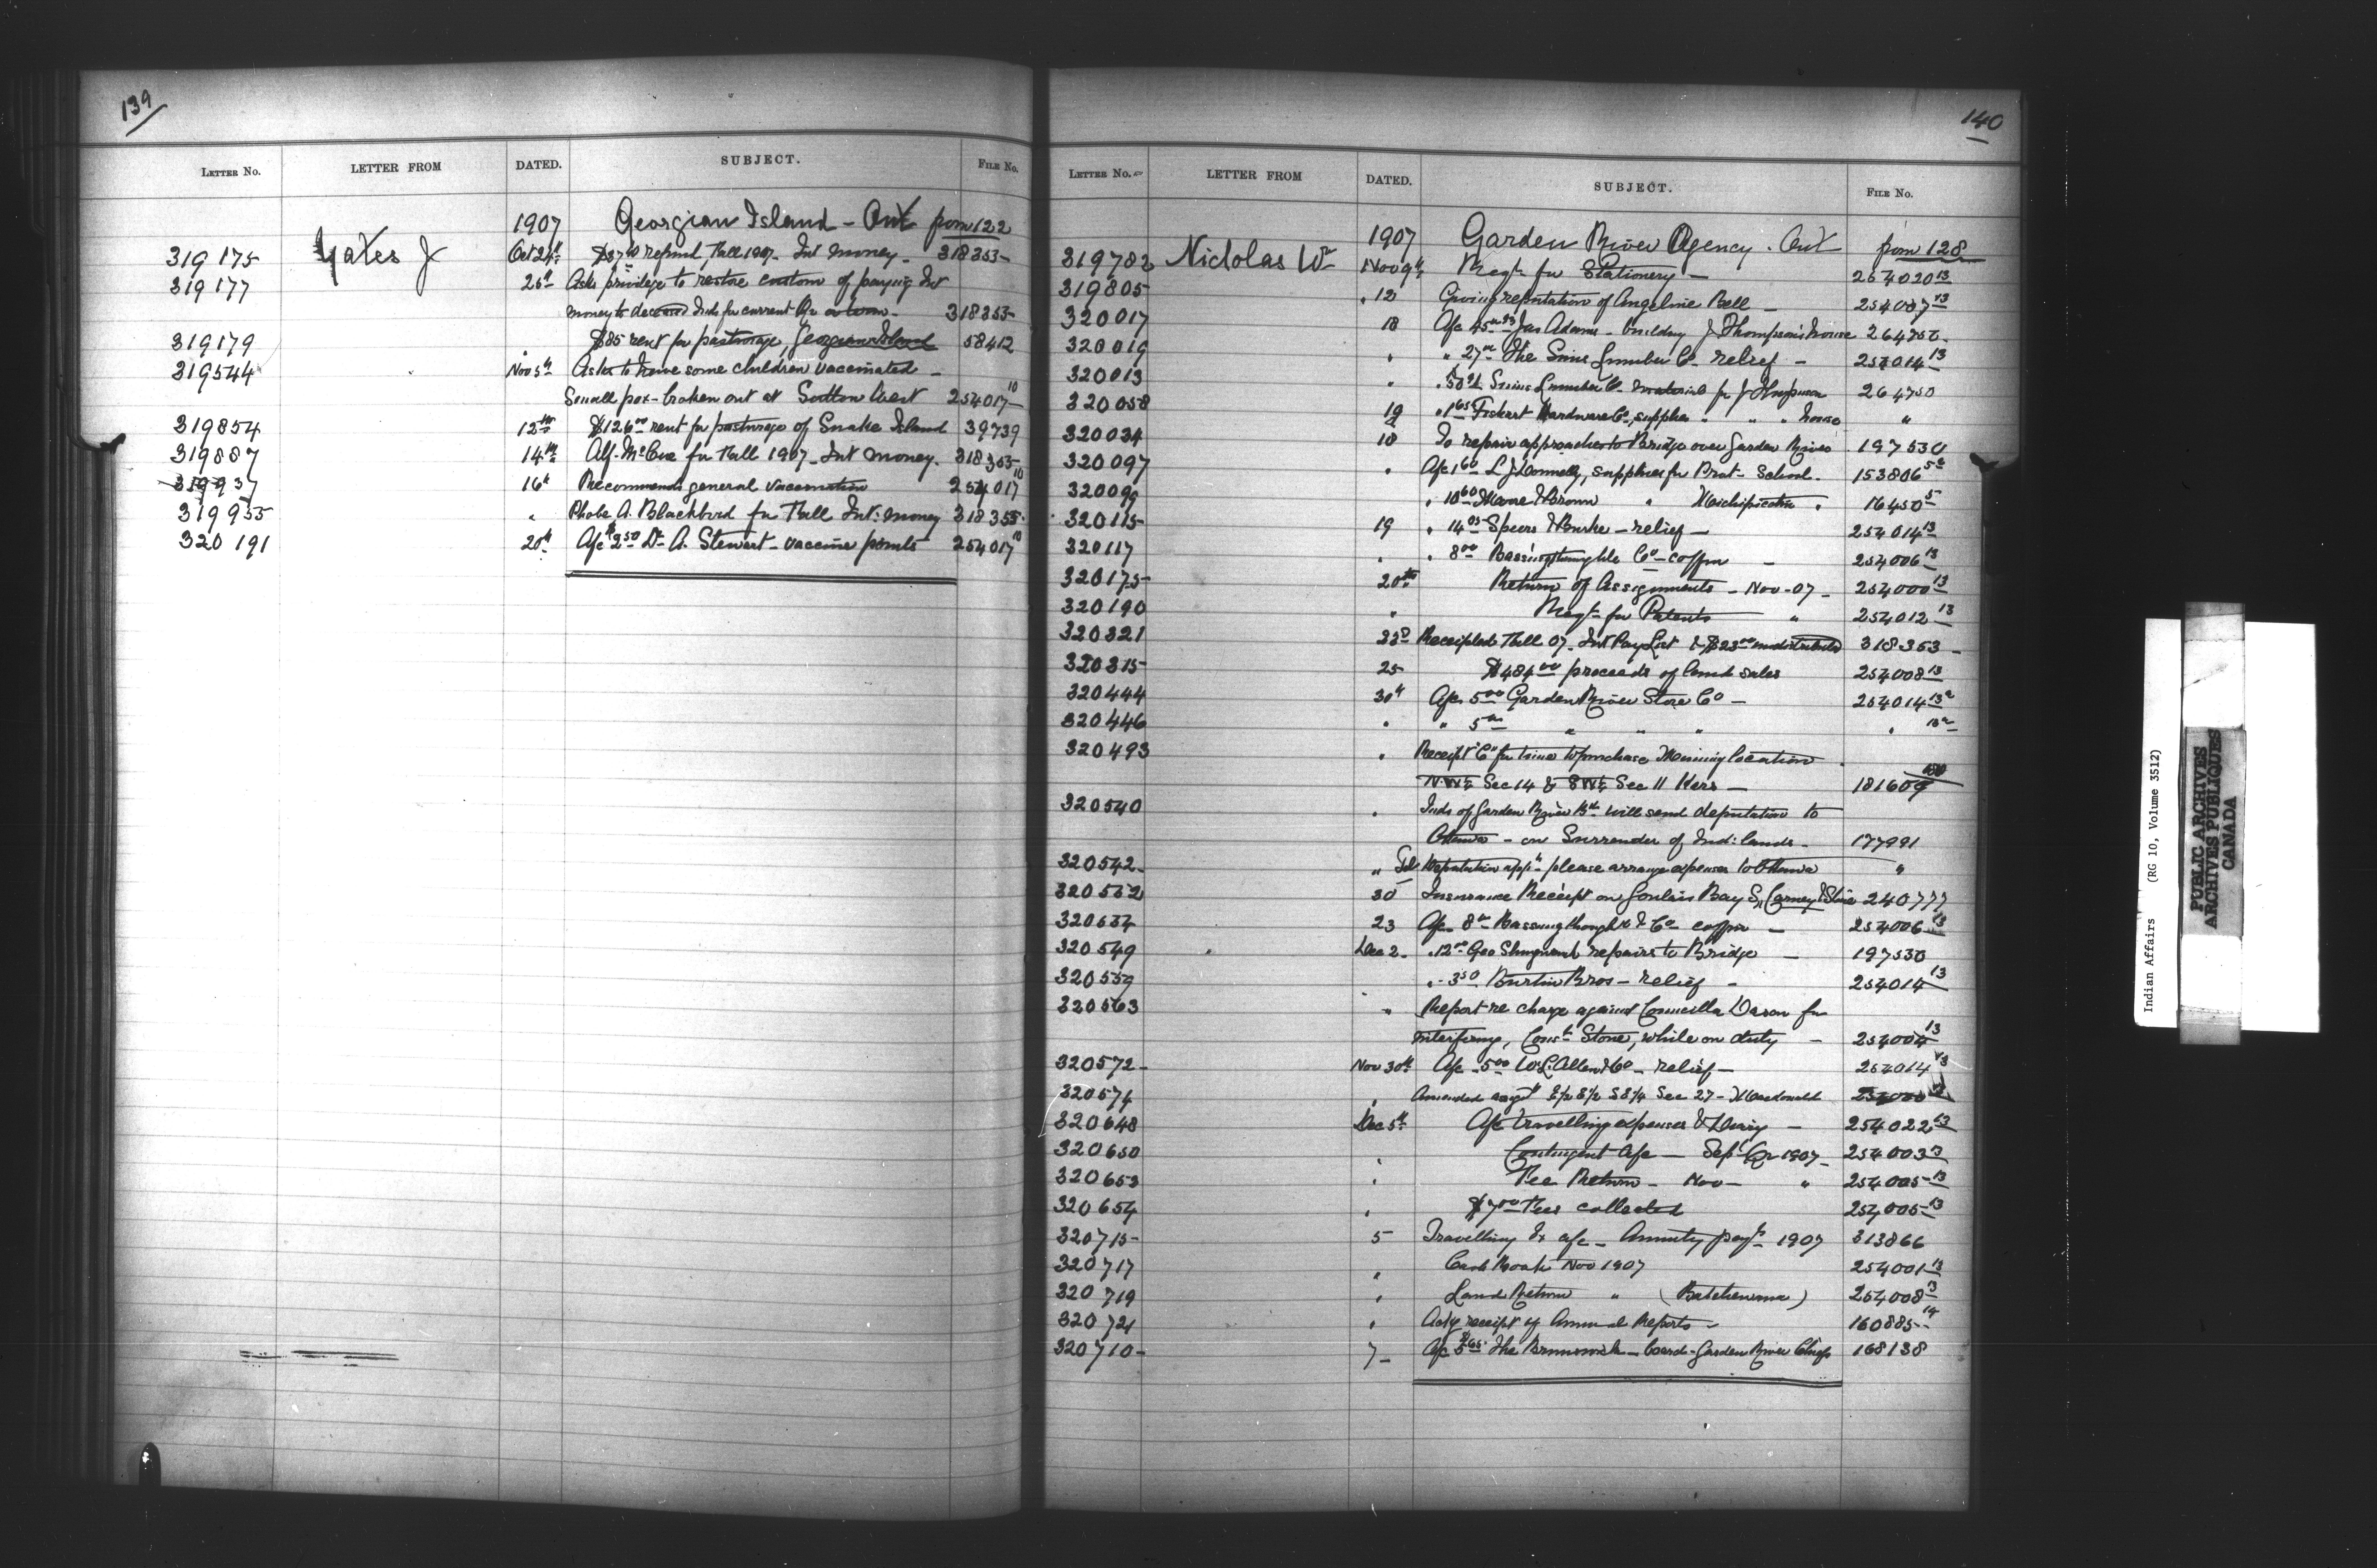 139
LETTER NO. LETTER FROM DATED. SUBJECT. FILE NO.
1907 Georgian Island - Ont from 122
319175 Yates J Oct 24th refund, Fall 1907. Int money. 318353
319177 26th Asks privilege to restore custom of paying Int
money to deceased Inds for current 318353
319179 " $85 rent for pasturage, Georgian Island 58412
319544 Nov 5th Asks to have some children vaccinated -
Small pox - broken out at Sutton West 254017 10
319854 12th $126 00 rent for pasturage of Snake Island 39739
319887 14th Alf. McCue for Fall 1907 Int money. 318353
319937 16th Recommends general vaccination 254017 10
319955 " Phobe A. Blackbird for Fall Int. money 318353
320191 20th A/c $2 50 Dr A. Stewart - vaccine points 254017 10
140
LETTER NO. LETTER FROM DATED. SUBJECT. FILE NO.
1907 Garden River Agency. Ont from 128
319782 Nicholas Wm Nov 9th Reqt for Stationery - 254020 13
319805 " 12 Giving reputation of Angeline Bell - 254007 13
320017 18 A/c 45 Jas Adams - building J Thompson's house 264750
320019 " " 27 The Soo Lumber Co. relief - 254014 13
320013 " Lumber Co. material for J Thompson 264750
320058 19 " 1 65 Hardware Co, supplies " " " house "
320034 18 To repair approaches to Bridge over Garden River 197530
320097 " A/c 1 60 L J Donnelly, supplies for Prot - School. 153806
320099 " 10 60 Moore & Brown " Michipicoten " 16450 5
320115 19 " 14 Speers & Burke - relief - 254014 13
320117 " " 8 00 Co - coffin - 254006 13
320175 20th Return of Assignments - Nov - 07 - 254000 13
320190 " Reqt for Patents " 254012 13
320321 23d Receipted Fall 07. Int Pay List & $23 00 undistributed 318353
320315 25 $484 00 proceeds of land sales 254008 13
320444 30th A/c 5 00 Garden River Store Co - 254014 13a
320446 " " 5 00 " " " " 13a
320493 " Receipt "C" for to purchase Mining location
N.W¼ Sec 14 & S W¼ Sec 11 Kars - 181609
320540 " Inds of Garden River Bd. will send deputation to
Ottawa - on Surrender of Ind: lands - 177991
320542 " Tel Deputation please arrange expenses to Ottawa "
320552 30 Insurance Receipt on Goulais Bay 240777
320534 23 A/c 8 00 & Co coffin - 254006 13
320549 Dec 2. " 12 00 Geo repairs to Bridge - 197530
320559 " " 3 50 Bros - relief - 254014 13
320563 " Report re charge against for
interfering, Const. Stone, while on duty - 254004 13
320572 Nov 30th A/c 5 00 W. L. Allen & Co - relief - 254014 13
320574 " Amended Sec 27 - Macdonald
320648 Dec 5th A/c travelling expenses & Diary - 254022 13
320650 " Contingent A/c - Sept Qr 1907 - 254003 13
320653 " Fee Return - Nov - " 254005 13
320654 " $7 00 Fees collected 254005 13
320715 5 Travelling Ex a/c - Annuity payt 1907 313866
320717 " Cash Book Nov 1907 254001 13
320719 " Land Return " (Batchewana) 254008 13
320721 " Ackg receipt of Annual Reports - 160885 14
320710 7 - A/c The Brunswick - board - Garden River Chiefs 168138
Indian Affairs (RG 10, Volume 3512)
PUBLIC ARCHIVES
ARCHIVES PUBLIQUES
CANADA